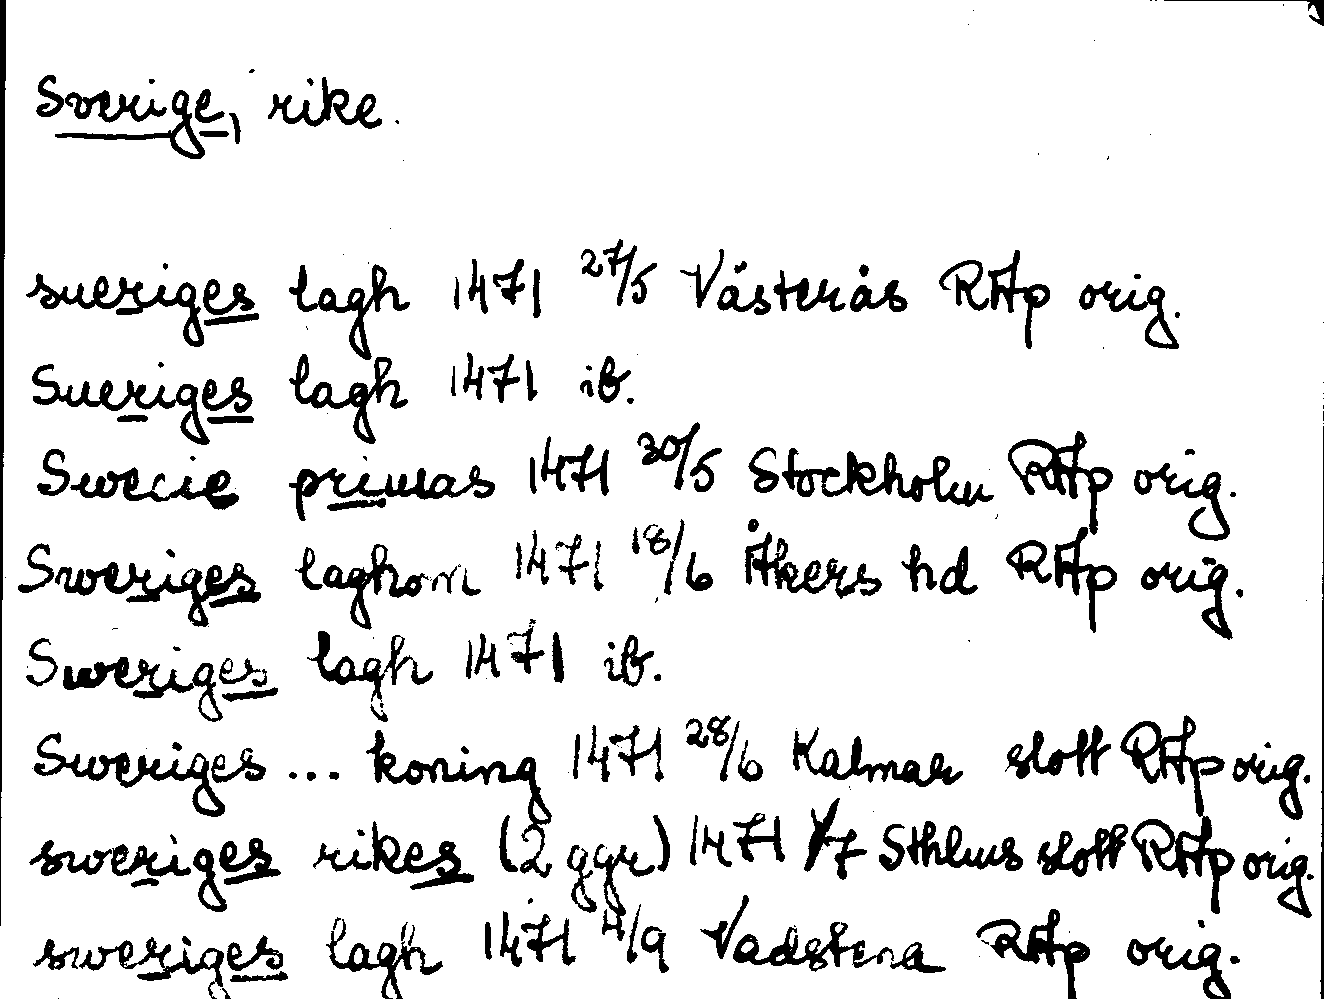 Sverige, rike.
sueriges lagh 1471 27/5 Västerås RAp orig.
Sueriges lagh 1471 ib.
Swecie primas 1471 30/5 Stockholm RAp orig.
Sweriges laghom 1471 18/6 Åkers hd RAp orig.
Sweriges lagh 1471 ib.
Sweriges ... koning 1471 28/6 Kalmar slott RAp orig.
sweriges rikes (2 ggr) 1471 1/7 Sthlms slott RAp orig.
sweriges lagh 1471 4/9 Vadstena RAp orig.